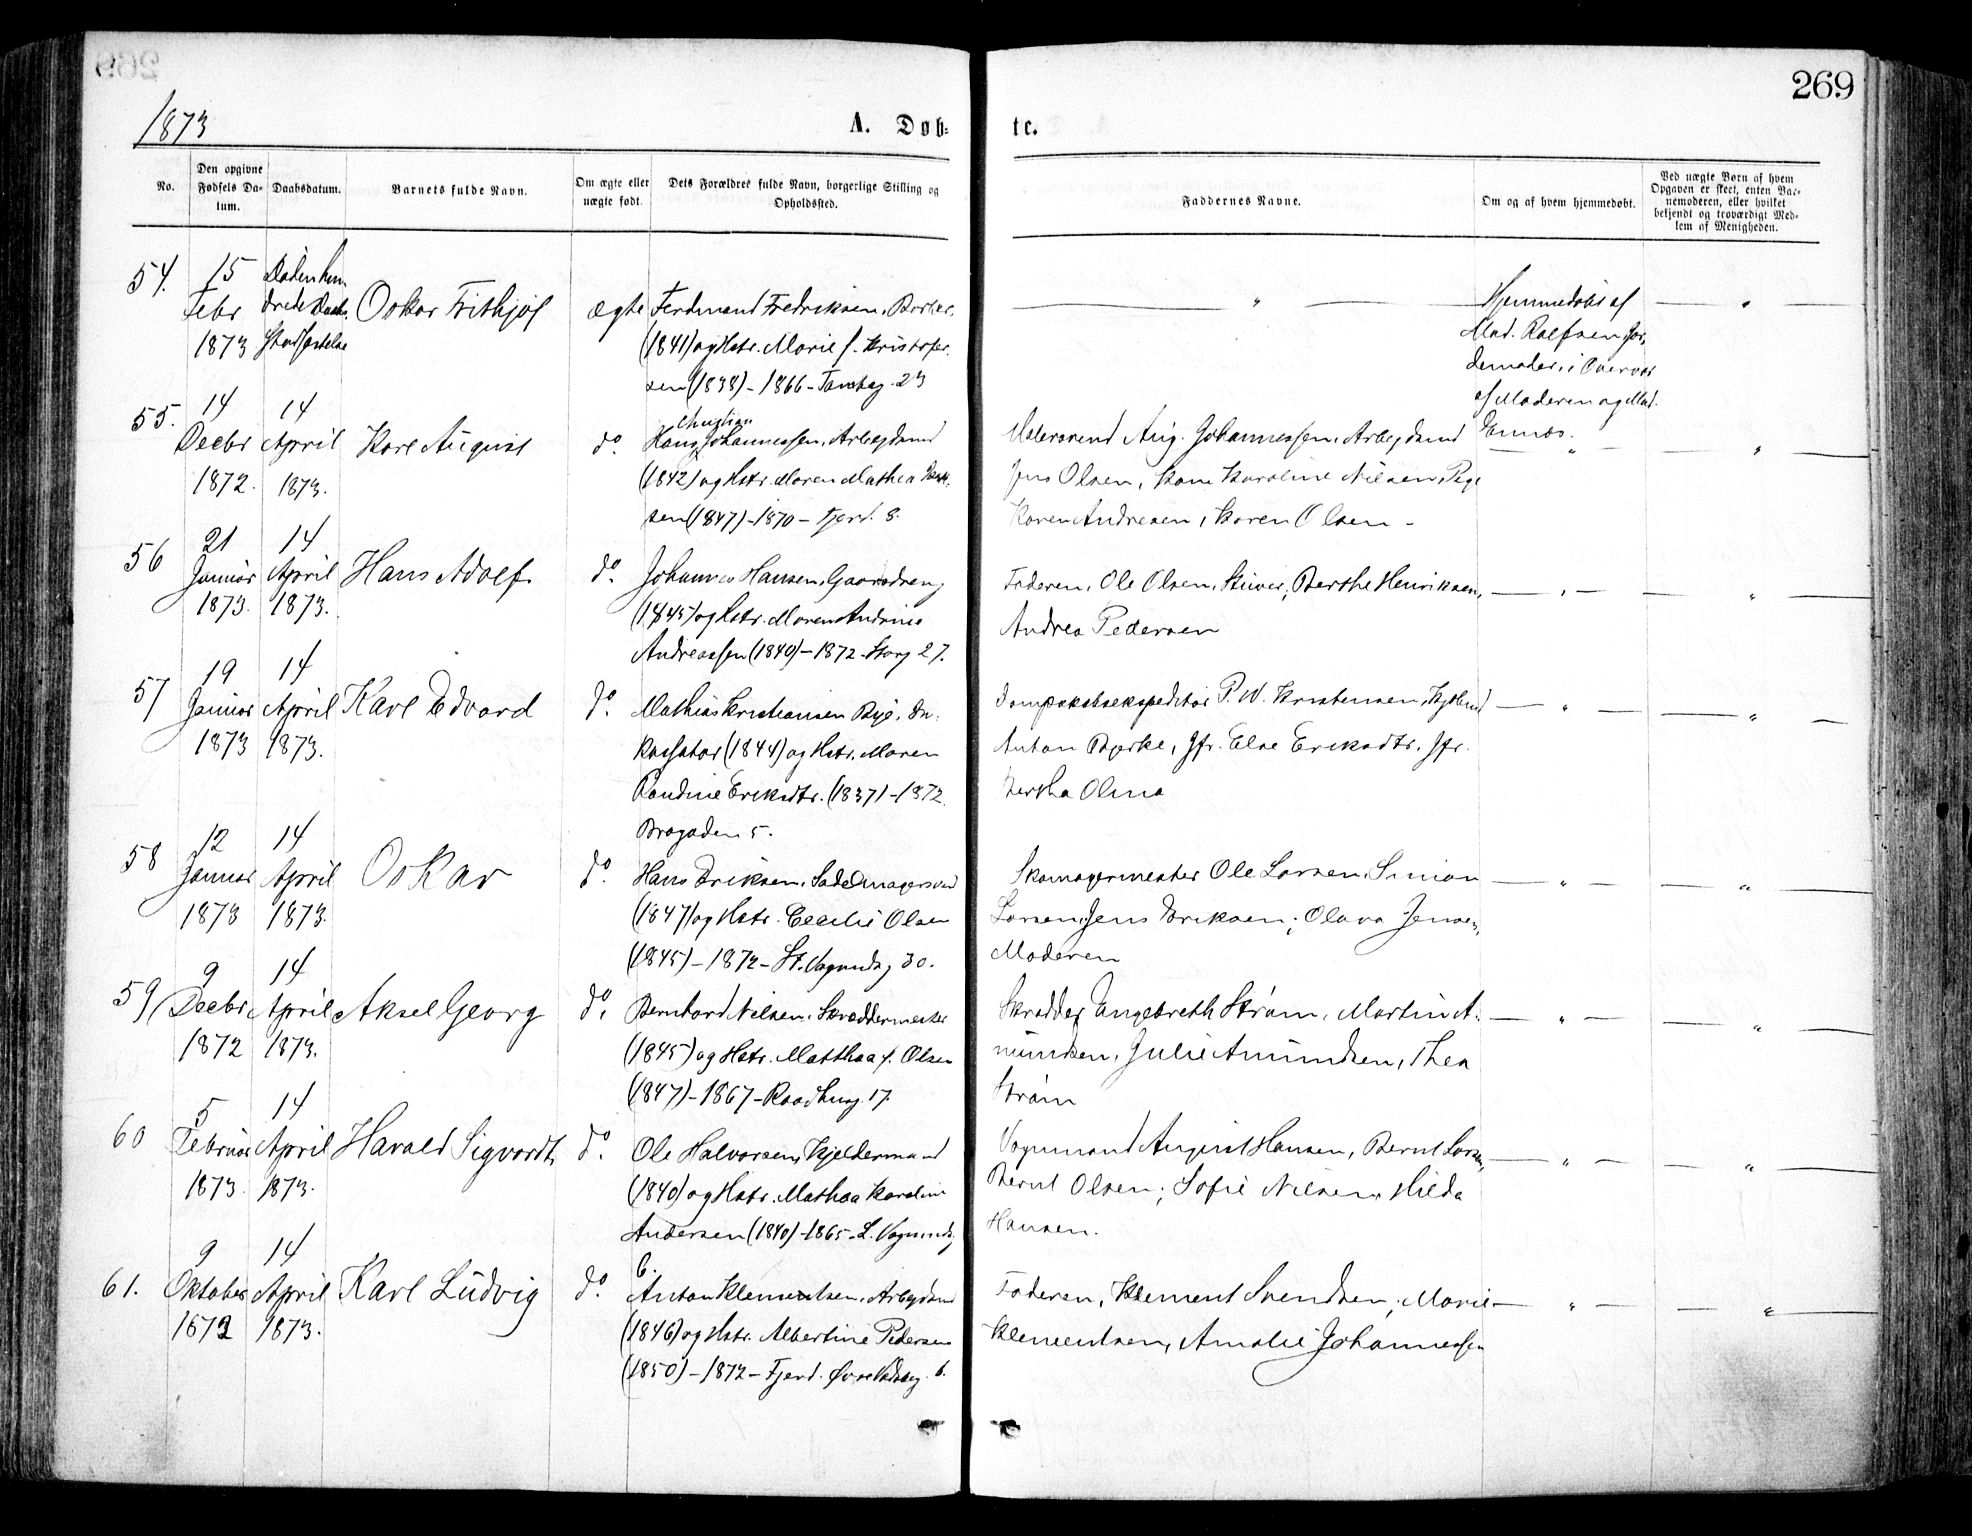 269
1873
A. Døb-
te.
No.
Den opgivne Fødsels Da-
tum.
Daabsdatum.
Barnets fulde Navn.
Om ægte eller
uægte født.
Dets Forældres fulde Navn, borgerlige Stilling og
Opholdssted.
Faddernes Navne.
Om og af hvem hjemmedøbt.
Ved uægte Børn af hvem
Opgaven er skeet, enten Bar-
nemoderen, eller hvilket
bekjendt og troværdigt Med-
lem af Menigheden.
54.
15
Febr
1873
Døden hin-
drede Daabs
Stadfæstelse
Oskar Frithjof
ægte
Ferdinand Fredriksen,
(1841) og Hstr. Marie f. Kristofer-
sen (1838) - 1866 - 23
"
Hjemmedøbt af
Mad. Rolfsen Jor-
demoder, i Overvær
af Moderen og Mad.
"
55.
14
Decbr
1872.
14
April
1873.
Karl August
do.
Christian
Hans Johannessen, Arbejdsmd
(1842) og Hstr. Maren Mathea
sen (1847) - 1870 - Fjerd. 8.
Malersvend Aug. Johannessen, Arbejdsmd
Jens Olsen, Kone Karoline Nilsen, Pige
Karen Andresen, Karen Olsen -
"
"
56
21
Januar
1873.
14
April
1873.
Hans Adolf
do.
Johannes Hansen, Gaardsdreng
(1845) og Hstr. Maren Andrine
Andreassen (1840) - 1872 - Storg 27.
Faderen, Ole Olsen, Stuver, Berthe Henriksen,
Andrea Pedersen
"
"
57
19
Januar
1873
14
April
1873.
Karl Edvard
do.
Mathias Kristiansen Bye, In-
kassator (1844) og Hstr. Maren
Randine Eriksdtr. (1837) - 1872
Brogaden 5.
Dampskibsekspeditør P. W. Kristensen,
Anton Bjerke, Jfr. Else Eriksdtr. Jfr.
Bertha Olina
"
"
58
12
Januar
1873
14
April
1873.
Oskar
do.
Hans Eriksen, Sadelmagersvd
(1847) og Hstr. Cecilie Olsen
(1845) - 1872 - St. Vognmdsg 30.
Skomagermester Ole Larsen, Simon
Larsen, Jens Eriksen; Olava Jensen,
Moderen
"
"
59
9
Decbr
1872
14
April
1873.
Aksel Georg
do.
Bernhard Nilsen, Skræddermester
(1845) og Hstr. Matthea f. Olsen
(1847) - 1867 - Raadhusg. 17.
Skrædder Engebreth Strøm, Martin A-
mundsen, Julie Amundsen, Thea
Strøm
"
"
60
5
Februar
1873.
14
April
1873.
Harald Sigvardt
do.
Ole Halvorsen, Kjeldermand
(1840) og Hstr. Mathea Karoline
Andersen (1840) - 1865 - L. Vognmdsg
6.
Vognmand August Hansen, Bernt Larsen,
Bernt Olsen; Sofie Nilsen, Hilda
Hansen.
"
"
61.
9
Oktober
1872
14
April
1873.
Karl Ludvig
do.
Anton Klementsen, Arbejdsmd
(1846) og Hstr. Albertine Pedersen
(1850) - 1872 - Fjerd. Øvre 6.
Faderen, Klement Svendsen; Marie
Klementsen, Amalie Johannessen
"
"